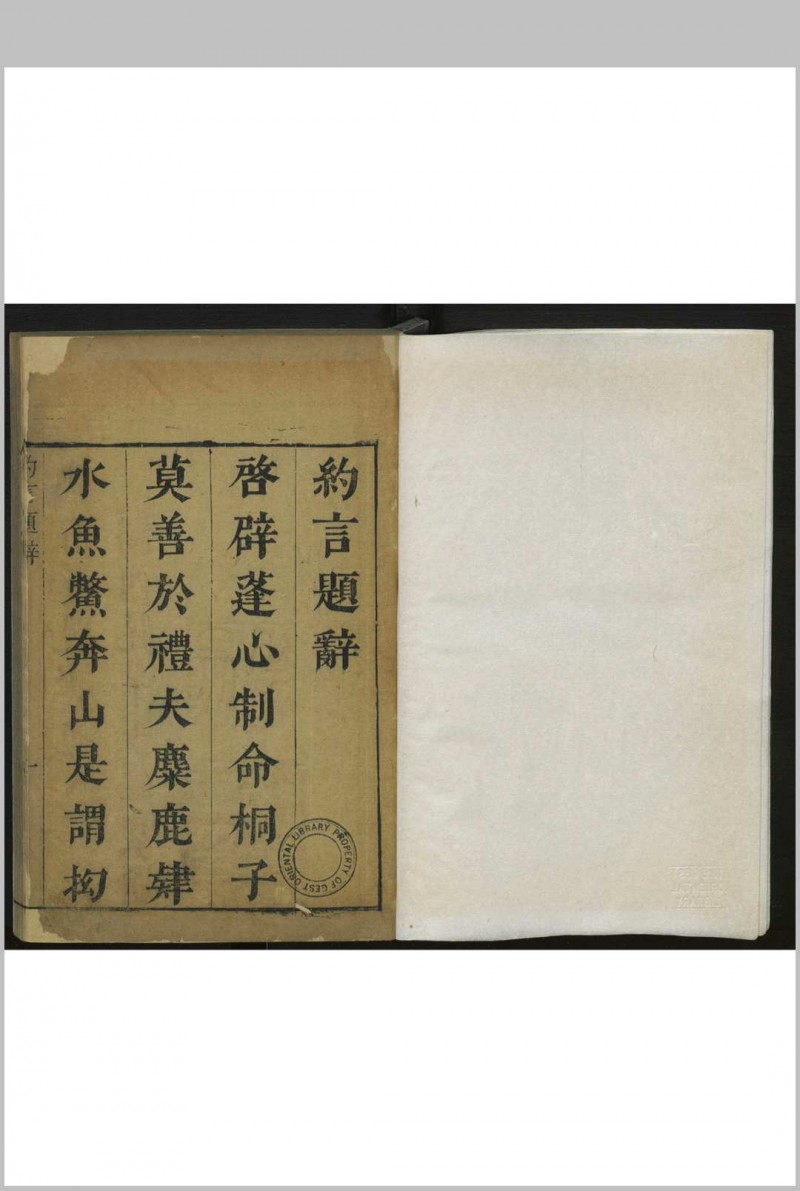 約言題辭
啓辟蓬心制命桐子
莫善於禮夫麋鹿肄
水魚鱉奔山是謂抝
約言題辭
一
LIBRARY PROPERTY OF GEST ORIENTAL